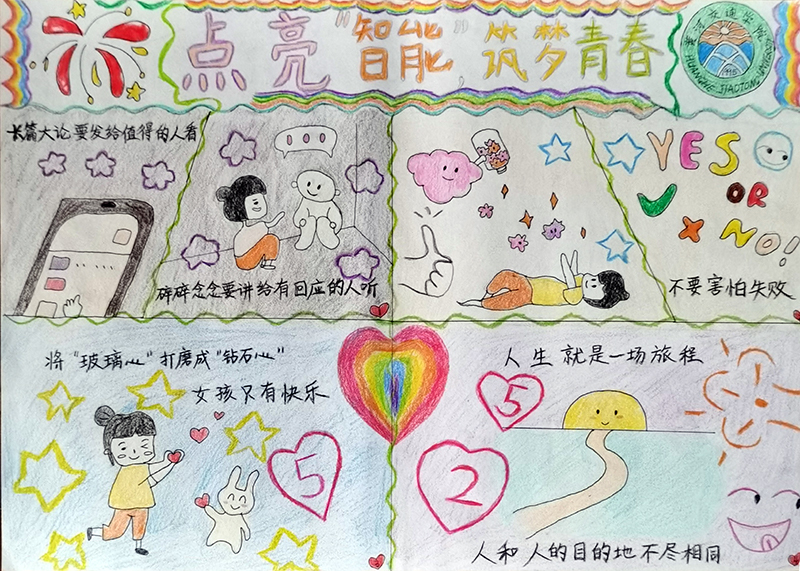 点亮"智能"筑梦青春
黄河交通学院
HUANGHE JIAOTONG
长篇大论要发给值得的人看
碎碎念念要讲给有回应的人听
YES
OR
NO!
不要害怕失败
将"玻璃心"打磨成"钻石心"
女孩只有快乐
5
人生就是一场旅程
5
2
人和人的目的地不尽相同